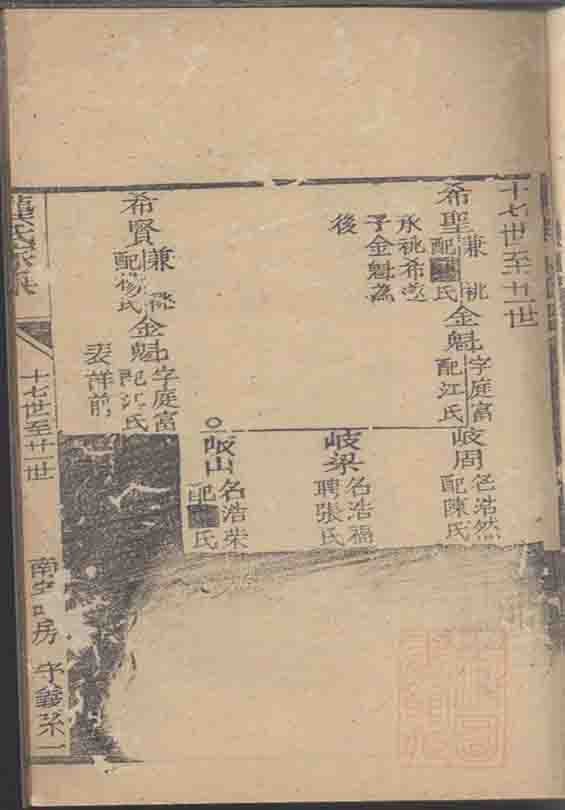 十七世至廿一世
希聖
兼祧
配氏
永祧希
子金魁為
後
金魁
字庭富
配江氏
岐周
名浩然
配陳氏
岐梁
名浩福
聘張氏
岐山
名浩榮
配氏
希賢
兼祧
配楊氏
金魁
字庭富
配江氏
詳前
十七世至廿一世
南 房 守義系一